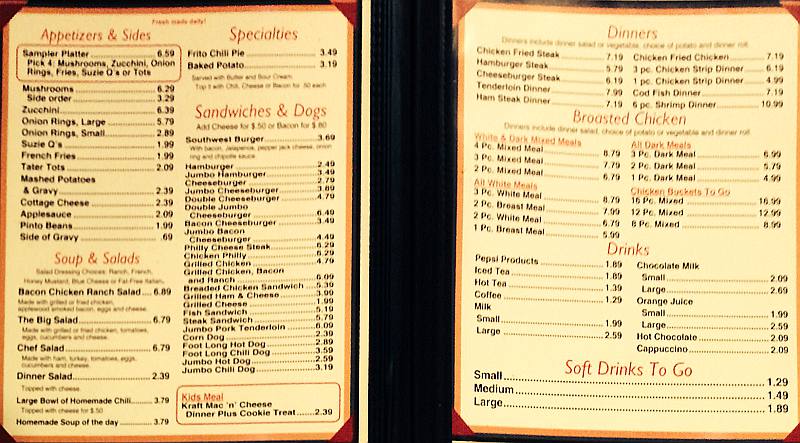 Fresh made daily!
Appetizers & Sides
Sampler Platter 6.59
Pick 4: Mushrooms, Zucchini, Onion
Rings, Fries, Suzie Q's or Tots
Mushrooms 6.29
Side order 3.29
Zucchini 6.39
Onion Rings, Large 5.79
Onion Rings, Small 2.89
Suzie Q's 1.99
French Fries 1.99
Tater Tots 2.09
Mashed Potatoes
& Gravy 2.39
Cottage Cheese 2.39
Applesauce 2.09
Pinto Beans 1.99
Side of Gravy .69
Soup & Salads
Salad Dressing Choices: Ranch, French,
Honey Mustard, Blue Cheese or Fat-Free Italian.
Bacon Chicken Ranch Salad 6.89
Made with grilled or fried chicken,
applewood smoked bacon, eggs and cheese.
The Big Salad 6.79
Made with grilled or fried chicken, tomatoes,
eggs, cucumbers and cheese.
Chef Salad 6.79
Made with ham, turkey, tomatoes, eggs,
cucumbers and cheese.
Dinner Salad 2.39
Topped with cheese.
Large Bowl of Homemade Chili 3.79
Topped with cheese for $.50
Homemade Soup of the day 3.79
Specialties
Frito Chili Pie 3.49
Baked Potato 3.19
Served with Butter and Sour Cream.
Top it with Chili, Cheese or Bacon for .50 each
Sandwiches & Dogs
Add Cheese for $.50 or Bacon for $.80
Southwest Burger 3.69
With bacon, jalapenos, pepper jack cheese, onion
ring and chipotle sauce
Hamburger 2.49
Jumbo Hamburger 3.49
Cheeseburger 2.79
Jumbo Cheeseburger 3.89
Double Cheeseburger 4.79
Double Jumbo
Cheeseburger 6.49
Bacon Cheeseburger 3.49
Jumbo Bacon
Cheeseburger 4.49
Philly Cheese Steak 6.29
Chicken Philly 6.29
Grilled Chicken 4.79
Grilled Chicken, Bacon
and Ranch 6.09
Breaded Chicken Sandwich 5.39
Grilled Ham & Cheese 3.99
Grilled Cheese 1.99
Fish Sandwich 5.19
Steak Sandwich 5.79
Jumbo Pork Tenderloin 6.09
Corn Dog 2.39
Foot Long Hot Dog 2.89
Foot Long Chili Dog 3.59
Jumbo Hot Dog 2.59
Jumbo Chili Dog 3.19
Kids Meal
Kraft Mac 'n' Cheese
Dinner Plus Cookie Treat 2.39
Dinners
Dinners include dinner salad or vegetable, choice of potato and dinner roll.
Chicken Fried Steak 7.19
Hamburger Steak 5.79
Cheeseburger Steak 6.19
Tenderloin Dinner 7.99
Ham Steak Dinner 7.19
Chicken Fried Chicken 7.19
3 pc. Chicken Strip Dinner 6.19
1 pc. Chicken Strip Dinner 4.99
Cod Fish Dinner 7.19
6 pc. Shrimp Dinner 10.99
Broasted Chicken
Dinners include dinner salad, choice of potato or vegetable and dinner roll.
White & Dark Mixed Meals
4 Pc. Mixed Meal 8.79
3 Pc. Mixed Meal 7.79
2 Pc. Mixed Meal 6.79
All White Meals
3 Pc. White Meal 8.79
2 Pc. Breast Meal 7.99
2 Pc. White Meal 6.79
1 Pc. Breast Meal 5.99
All Dark Meals
3 Pc. Dark Meal 6.99
2 Pc. Dark Meal 5.79
1 Pc. Dark Meal 4.99
Chicken Buckets To Go
16 Pc. Mixed 16.99
12 Pc. Mixed 12.99
8 Pc. Mixed 8.99
Drinks
Pepsi Products 1.89
Iced Tea 1.89
Hot Tea 1.39
Coffee 1.29
Milk
Small 1.99
Large 2.59
Chocolate Milk
Small 2.09
Large 2.69
Orange Juice
Small 1.99
Large 2.59
Hot Chocolate 2.09
Cappuccino 2.09
Soft Drinks To Go
Small 1.29
Medium 1.49
Large 1.89